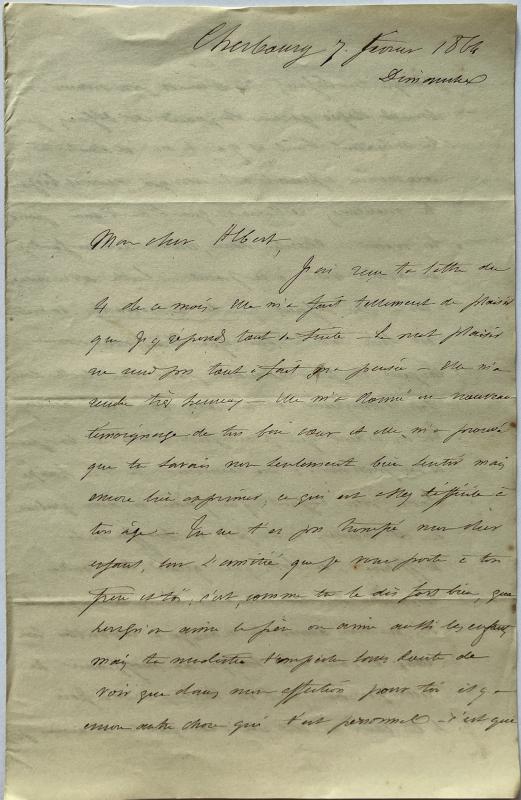 Cherbourg 7. février 1864
Dimanche
Mon cher Albert,
J'ai reçu ta lettre du
4 de ce mois. Elle m'a fait tellement de plaisir
que j'y réponds tout de suite – Le mot plaisir
ne rend pas tout à fait ma pensée – Elle m'a
rendu très heureux – Elle m'a donné un nouveau
témoignage de ton bon cœur et elle m'a prouvé
que tu savais non seulement bien sentir mais
encore bien exprimer, ce qui est assez difficile à
ton âge – Tu ne t'es pas trompé, mon cher
enfant, sur l'amitié que je vous porte à ton
frère et toi, c'est, comme tu le dis fort bien, que
lorsqu'on aime le père on aime aussi les enfants,
mais ta modestie t'empêche sans doute de
voir que dans mon affection pour toi il y a
encore autre chose qui t'est personnel – c'est que